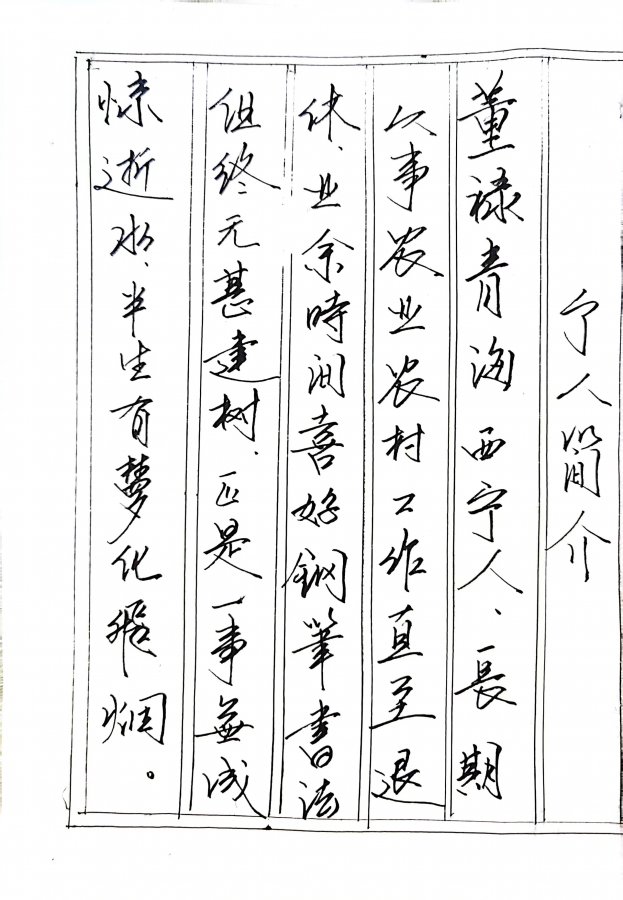 个人简介
董禄青海西宁人、長期
从事农业农村工作直至退
休、业余時间喜好钢筆書法
但终无甚建树、正是一事無成
惊逝水、半生有夢化飛烟。